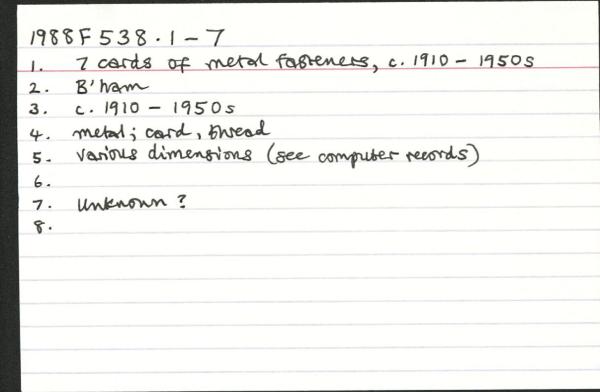 1988F538.1-7
1. 7 cards of metal fasteners, c. 1910 - 1950s
2. B'ham
3. c. 1910 - 1950s
4. metal; card, thread
5. various dimensions (see computer records)
6.
7. Unknown?
8.